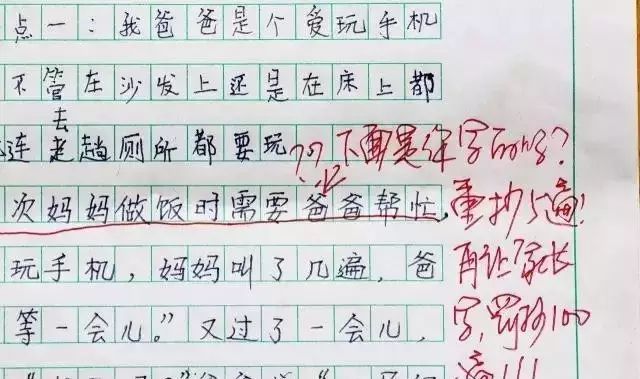 点一：我爸爸是个爱玩手机
不管在沙发上还是在床上都
去
连趟厕所都要玩
??下面是你写的吗?
次妈妈做饭时需要爸爸帮忙,
重抄5遍!
玩手机，妈妈叫了几遍，爸
再让家长
等一会儿。”又过了一会儿，
字,罚抄100
遍!!!